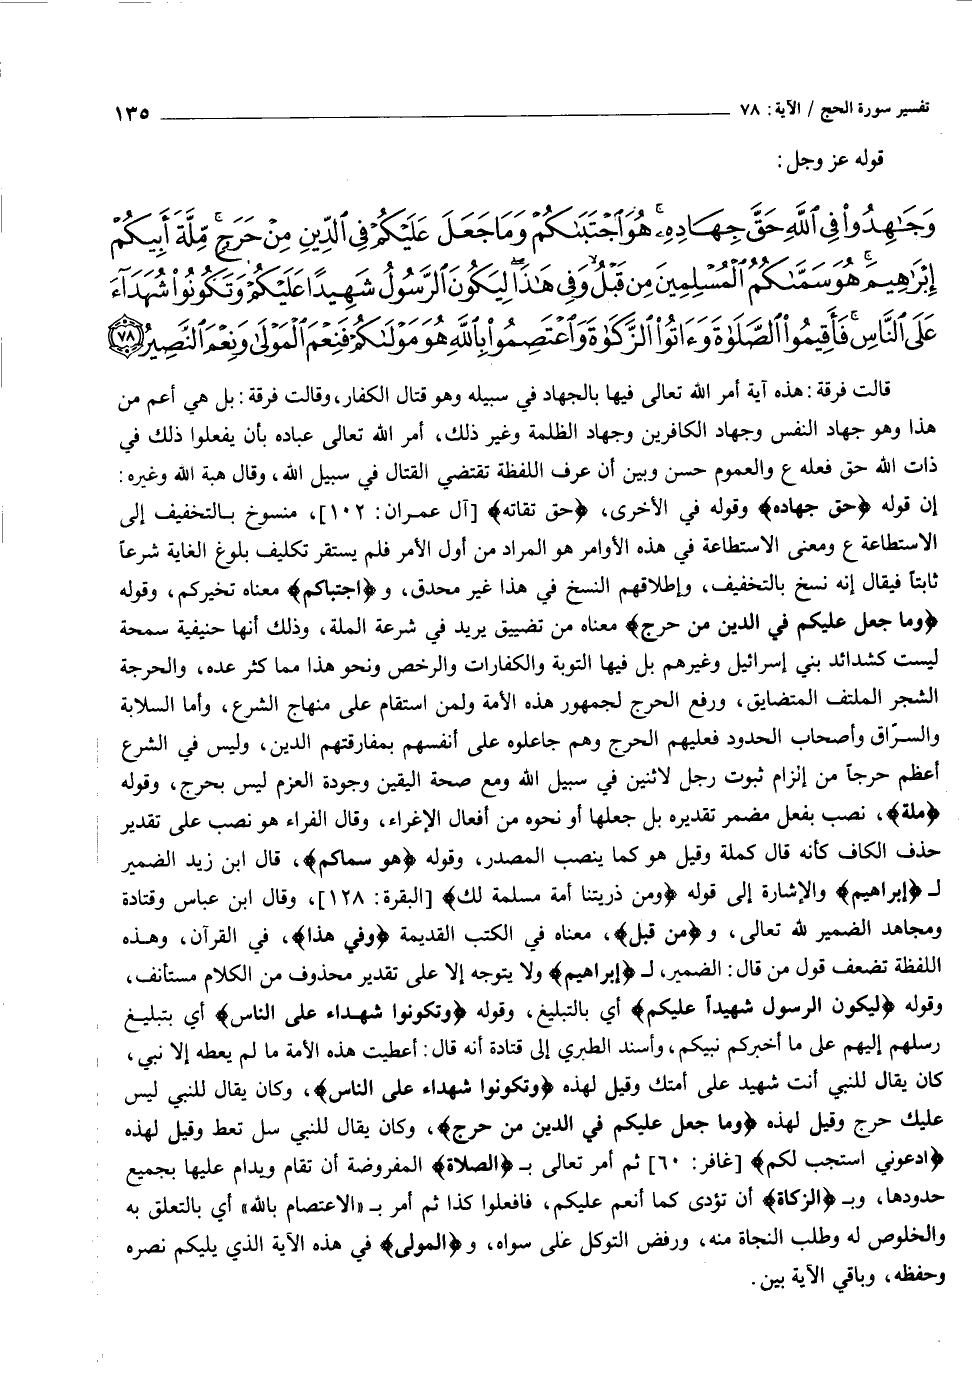 تفسير سورة الحج / الآية: ٧٨ ١٣٥
قوله عز وجل:
وَجَٰهِدُوا۟ فِى ٱللَّهِ حَقَّ جِهَادِهِۦ ۚ هُوَ ٱجْتَبَىٰكُمْ وَمَا جَعَلَ عَلَيْكُمْ فِى ٱلدِّينِ مِنْ حَرَجٍ ۚ مِّلَّةَ أَبِيكُمْ
إِبْرَٰهِيمَ ۚ هُوَ سَمَّىٰكُمُ ٱلْمُسْلِمِينَ مِن قَبْلُ وَفِى هَٰذَا لِيَكُونَ ٱلرَّسُولُ شَهِيدًا عَلَيْكُمْ وَتَكُونُوا۟ شُهَدَآءَ
عَلَى ٱلنَّاسِ ۚ فَأَقِيمُوا۟ ٱلصَّلَوٰةَ وَءَاتُوا۟ ٱلزَّكَوٰةَ وَٱعْتَصِمُوا۟ بِٱللَّهِ هُوَ مَوْلَىٰكُمْ فَنِعْمَ ٱلْمَوْلَىٰ وَنِعْمَ ٱلنَّصِيرُ ﴿٧٨﴾
قالت فرقة: هذه آية أمر الله تعالى فيها بالجهاد في سبيله وهو قتال الكفار، وقالت فرقة: بل هي أعم من
هذا وهو جهاد النفس وجهاد الكافرين وجهاد الظلمة وغير ذلك، أمر الله تعالى عباده بأن يفعلوا ذلك في
ذات الله حق فعله ع والعموم حسن وبين أن عرف اللفظة تقتضي القتال في سبيل الله، وقال هبة الله وغيره:
إن قوله ﴿حق جهاده﴾ وقوله في الأخرى، ﴿حق تقاته﴾ [آل عمران: ١٠٢]، منسوخ بالتخفيف إلى
الاستطاعة ع ومعنى الاستطاعة في هذه الأوامر هو المراد من أول الأمر فلم يستقر تكليف بلوغ الغاية شرعاً
ثابتاً فيقال إنه نسخ بالتخفيف، وإطلاقهم النسخ في هذا غير محدق، و ﴿اجتباكم﴾ معناه تخيركم، وقوله
﴿وما جعل عليكم في الدين من حرج﴾ معناه من تضييق يريد في شرعة الملة، وذلك أنها حنيفية سمحة
ليست كشدائد بني إسرائيل وغيرهم بل فيها التوبة والكفارات والرخص ونحو هذا مما كثر عده، والحرجة
الشجر الملتف المتضايق، ورفع الحرج لجمهور هذه الأمة ولمن استقام على منهاج الشرع، وأما السلابة
والسرّاق وأصحاب الحدود فعليهم الحرج وهم جاعلوه على أنفسهم بمفارقتهم الدين، وليس في الشرع
أعظم حرجاً من إلزام ثبوت رجل لاثنين في سبيل الله ومع صحة اليقين وجودة العزم ليس بحرج، وقوله
﴿ملة﴾، نصب بفعل مضمر تقديره بل جعلها أو نحوه من أفعال الإغراء، وقال الفراء هو نصب على تقدير
حذف الكاف كأنه قال كملة وقيل هو كما ينصب المصدر، وقوله ﴿هو سماكم﴾، قال ابن زيد الضمير
لـ ﴿إبراهيم﴾ والإشارة إلى قوله ﴿ومن ذريتنا أمة مسلمة لك﴾ [البقرة: ١٢٨]، وقال ابن عباس وقتادة
ومجاهد الضمير لله تعالى، و ﴿من قبل﴾، معناه في الكتب القديمة ﴿وفي هذا﴾، في القرآن، وهذه
اللفظة تضعف قول من قال: الضمير، لـ ﴿إبراهيم﴾ ولا يتوجه إلا على تقدير محذوف من الكلام مستأنف،
وقوله ﴿ليكون الرسول شهيداً عليكم﴾ أي بالتبليغ، وقوله ﴿وتكونوا شهداء على الناس﴾ أي بتبليغ
رسلهم إليهم على ما أخبركم نبيكم، وأسند الطبري إلى قتادة أنه قال: أعطيت هذه الأمة ما لم يعطه إلا نبي،
كان يقال للنبي أنت شهيد على أمتك وقيل لهذه ﴿وتكونوا شهداء على الناس﴾، وكان يقال للنبي ليس
عليك حرج وقيل لهذه ﴿وما جعل عليكم في الدين من حرج﴾، وكان يقال للنبي سل تعط وقيل لهذه
﴿ادعوني استجب لكم﴾ [غافر: ٦٠] ثم أمر تعالى بـ ﴿الصلاة﴾ المفروضة أن تقام ويدام عليها بجميع
حدودها، وبـ ﴿الزكاة﴾ أن تؤدى كما أنعم عليكم، فافعلوا كذا ثم أمر بـ «الاعتصام بالله» أي بالتعلق به
والخلوص له وطلب النجاة منه، ورفض التوكل على سواه، و ﴿المولى﴾ في هذه الآية الذي يليكم نصره
وحفظه، وباقي الآية بين.